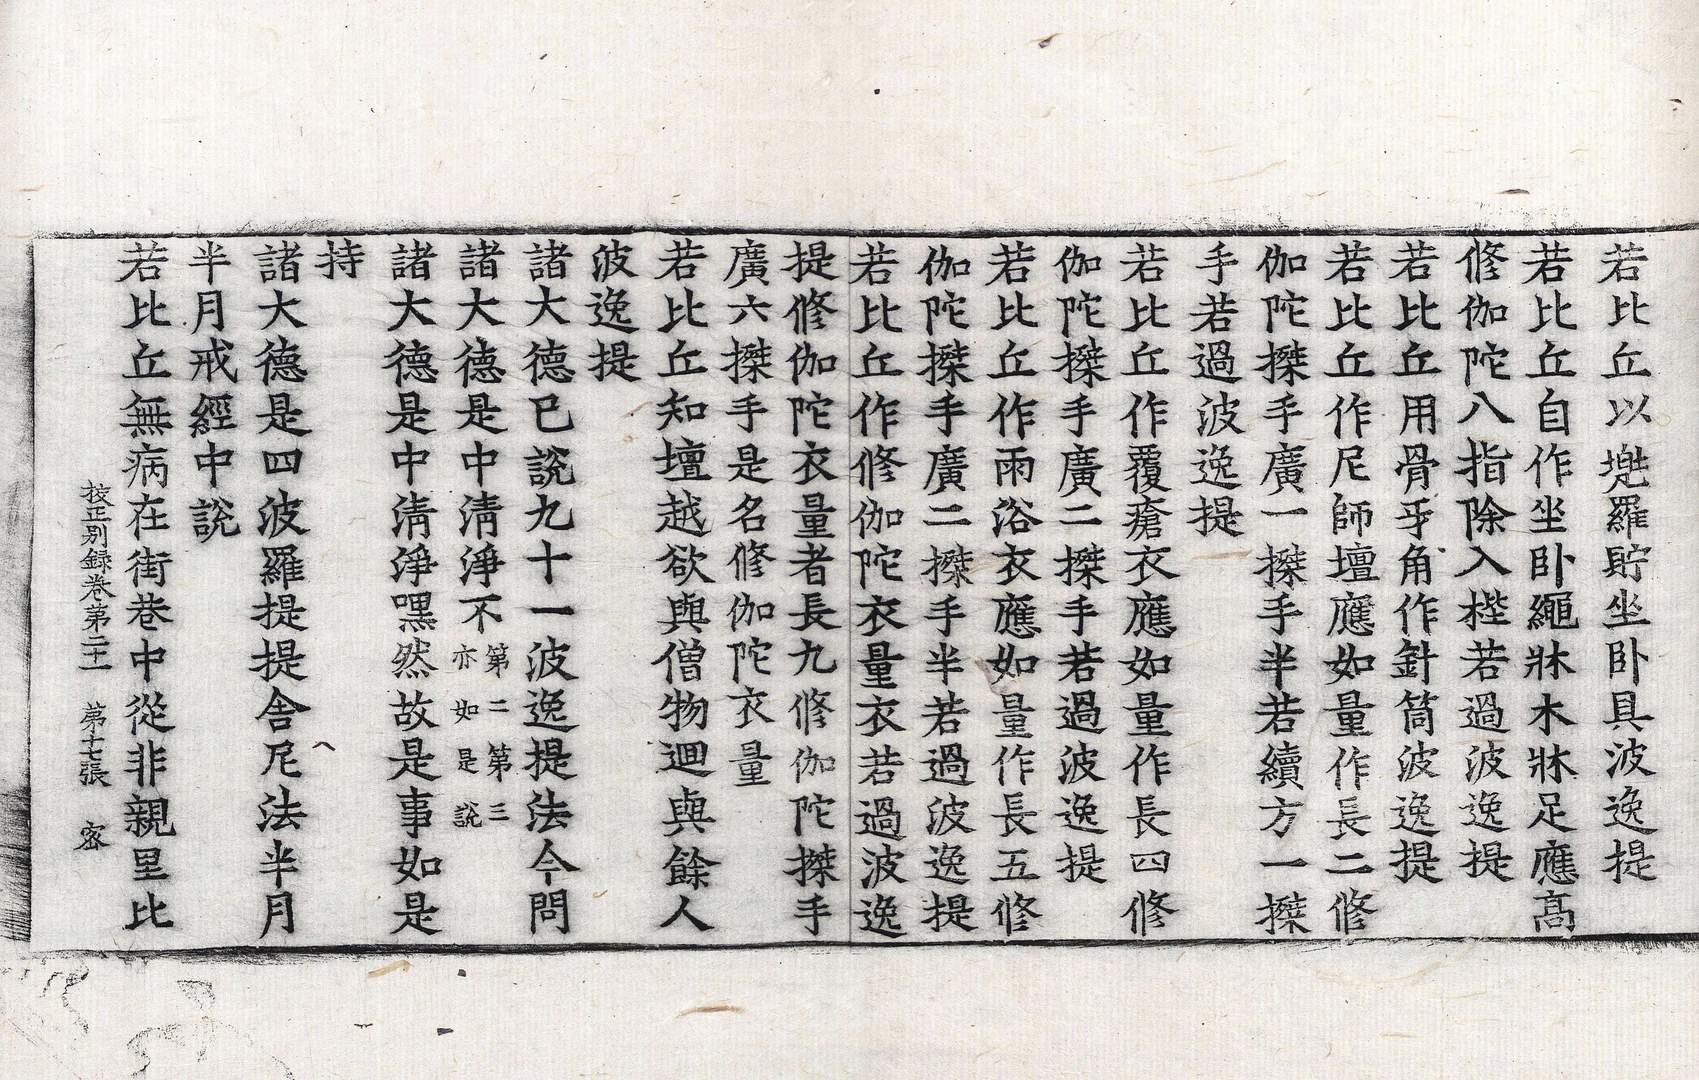 若比丘以兠羅貯坐卧具波逸提
若比丘自作坐卧繩牀木牀足應髙
修伽陀八指除入梐若過波逸提
若比丘用骨牙角作針筒波逸提
若比丘作尼師壇應如量作長二修
伽陀搩手廣一搩手半若續方一搩
手若過波逸提
若比丘作覆瘡衣應如量作長四修
伽陀搩手廣二搩手若過波逸提
若比丘作雨浴衣應如量作長五修
伽陀搩手廣二搩手半若過波逸提
若比丘作修伽陀衣量衣若過波逸
提修伽陀衣量者長九修伽陀搩手
廣六搩手是名修伽陀衣量
若比丘知壇越欲與僧物迴與餘人
波逸提
諸大德已說九十一波逸提法今問
諸大德是中清淨不第二第三亦如是說
諸大德是中清淨嘿然故是事如是
持
諸大德是四波羅提提舍尼法半月
半月戒經中說
若比丘無病在街巷中從非親里比
挍正别録卷第二十一 第十七張 宻